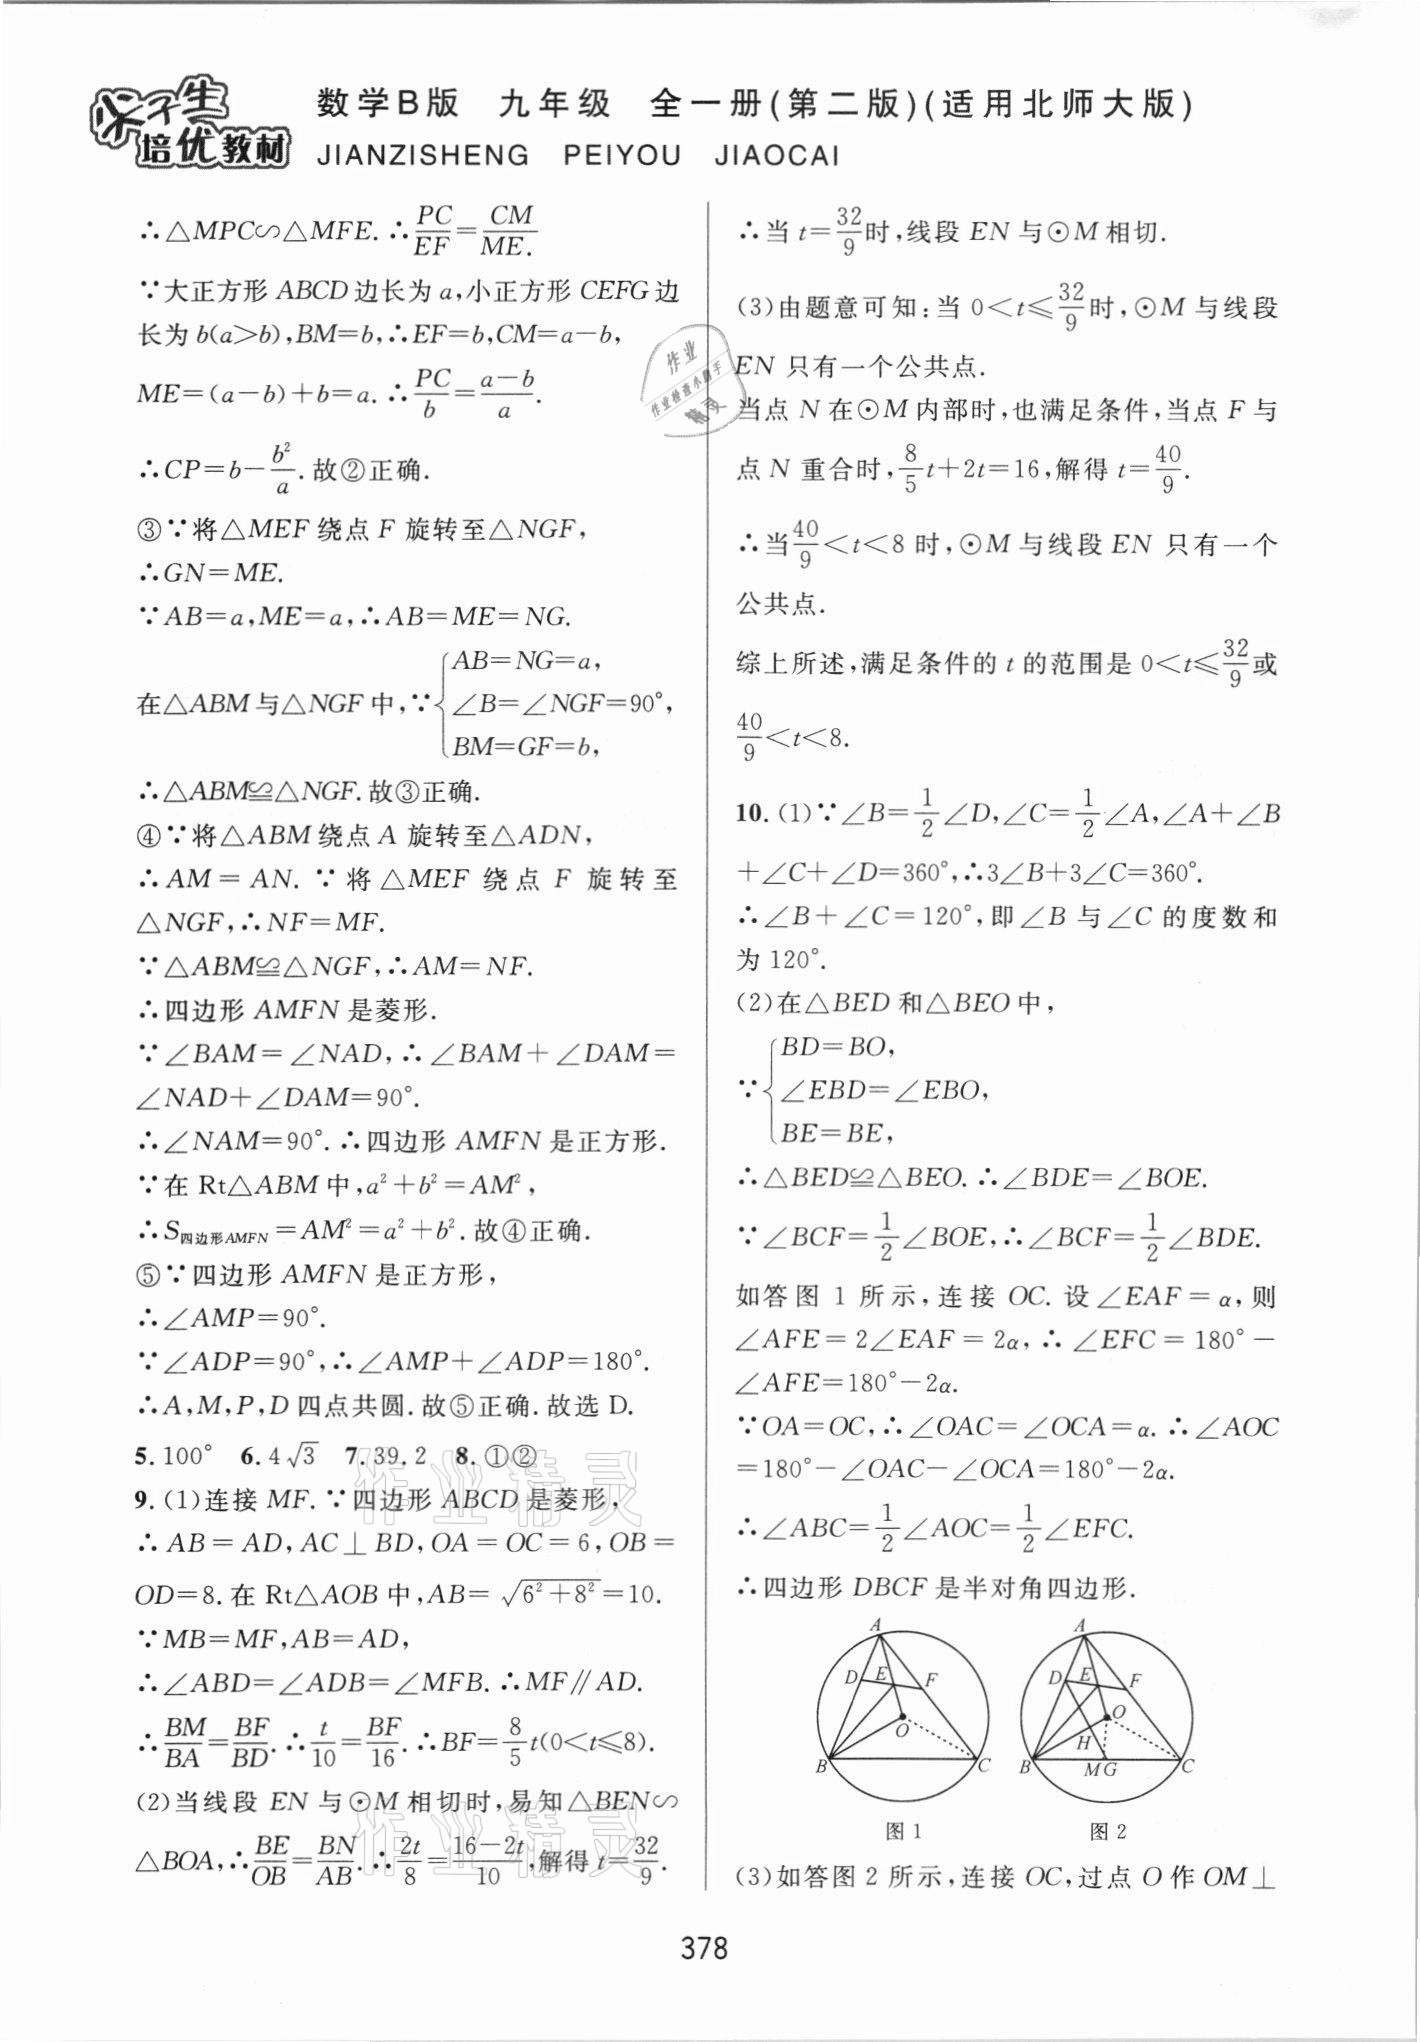 尖子生
培优教材
数学B版 九年级 全一册(第二版)(适用北师大版)
JIANZISHENG PEIYOU JIAOCAI
∴△MPC∽△MFE.∴PC/EF=CM/ME.
∵大正方形ABCD边长为a,小正方形CEFG边
长为b(a>b),BM=b,∴EF=b,CM=a-b,
ME=(a-b)+b=a.∴PC/b=(a-b)/a.
∴CP=b-b²/a.故②正确.
③∵将△MEF绕点F旋转至△NGF,
∴GN=ME.
∵AB=a,ME=a,∴AB=ME=NG.
在△ABM与△NGF中,∵{AB=NG=a,
∠B=∠NGF=90°,
BM=GF=b,
∴△ABM≌△NGF.故③正确.
④∵将△ABM绕点A旋转至△ADN,
∴AM=AN.∵将△MEF绕点F旋转至
△NGF,∴NF=MF.
∵△ABM≌△NGF,∴AM=NF.
∴四边形AMFN是菱形.
∵∠BAM=∠NAD,∴∠BAM+∠DAM=
∠NAD+∠DAM=90°.
∴∠NAM=90°.∴四边形AMFN是正方形.
∵在Rt△ABM中,a²+b²=AM²,
∴S四边形AMFN=AM²=a²+b².故④正确.
⑤∵四边形AMFN是正方形,
∴∠AMP=90°.
∵∠ADP=90°,∴∠AMP+∠ADP=180°.
∴A,M,P,D四点共圆.故⑤正确.故选D.
5.100° 6.4√3 7.39.2 8.①②
9.(1)连接MF.∵四边形ABCD是菱形,
∴AB=AD,AC⊥BD,OA=OC=6,OB=
OD=8.在Rt△AOB中,AB=√(6²+8²)=10.
∵MB=MF,AB=AD,
∴∠ABD=∠ADB=∠MFB.∴MF∥AD.
∴BM/BA=BF/BD.∴t/10=BF/16.∴BF=8/5t(0<t≤8).
(2)当线段EN与⊙M相切时,易知△BEN∽
△BOA,∴BE/OB=BN/AB.∴2t/8=(16-2t)/10,解得t=32/9.
∴当t=32/9时,线段EN与⊙M相切.
(3)由题意可知:当0<t≤32/9时,⊙M与线段
EN只有一个公共点.
当点N在⊙M内部时,也满足条件,当点F与
点N重合时,8/5t+2t=16,解得t=40/9.
∴当40/9<t<8时,⊙M与线段EN只有一个
公共点.
综上所述,满足条件的t的范围是0<t≤32/9或
40/9<t<8.
10.(1)∵∠B=1/2∠D,∠C=1/2∠A,∠A+∠B
+∠C+∠D=360°,∴3∠B+3∠C=360°.
∴∠B+∠C=120°,即∠B与∠C的度数和
为120°.
(2)在△BED和△BEO中,
∵{BD=BO,
∠EBD=∠EBO,
BE=BE,
∴△BED≌△BEO.∴∠BDE=∠BOE.
∵∠BCF=1/2∠BOE,∴∠BCF=1/2∠BDE.
如答图1所示,连接OC.设∠EAF=α,则
∠AFE=2∠EAF=2α,∴∠EFC=180°-
∠AFE=180°-2α.
∵OA=OC,∴∠OAC=∠OCA=α.∴∠AOC
=180°-∠OAC-∠OCA=180°-2α.
∴∠ABC=1/2∠AOC=1/2∠EFC.
∴四边形DBCF是半对角四边形.
A
D E F
O
B C
图1
A
D E F
O
H
B M G C
图2
(3)如答图2所示,连接OC,过点O作OM⊥
378
作业
作业检查小助手
精灵
作业精灵
作业精灵